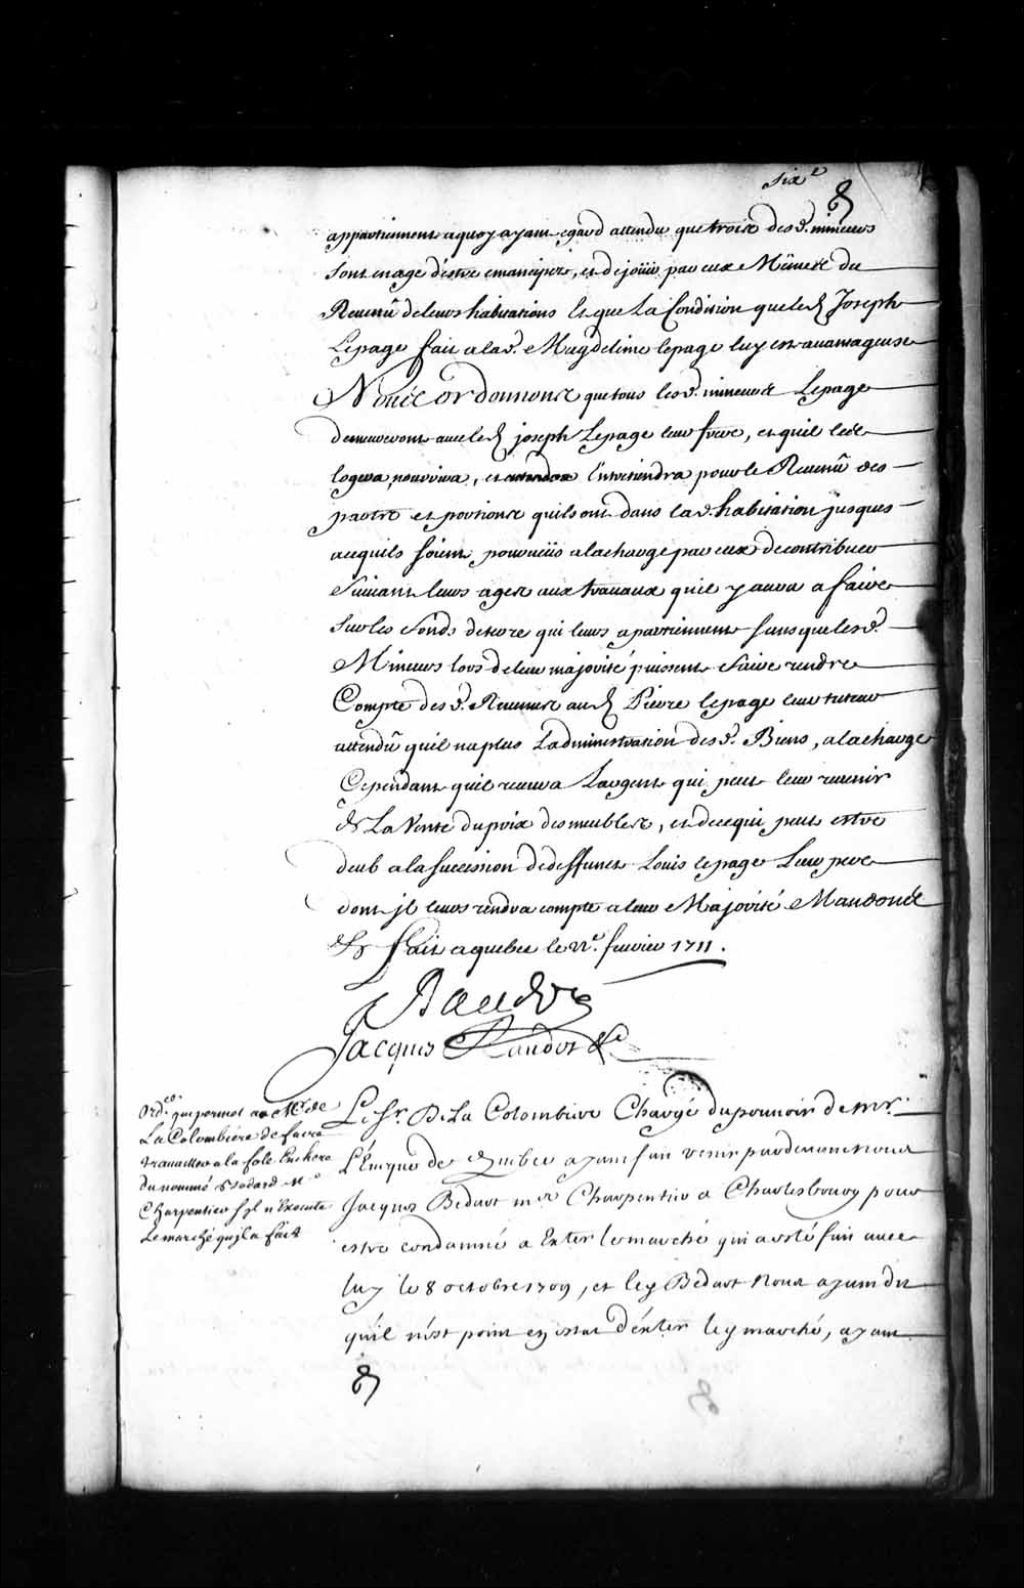 Sixe
appartiennent a quoy ayant egard attendu que trois des d. mineurs
sont en age destre emancipez, et de joüir par eux Mesmes du
Revenu de leurs habitations Et que La Condition que led Joseph
Lepage fait a lad. Magdeleine lepage luy est avantageuse
Nous ordonnons que tous les d. mineurs Lepage
demeureront avec led joseph Lepage leur frere, et quil les
logera, nourrira, et Entretiendra pour le Revenu des
parts et portions quils ont dans lad. habitation jusques
acequils soient pourvûs a la charge par eux de contribuer
suivant leurs ages aux travaux quil y aura a faire
sur les fonds de terre qui leurs apartiennent sans que lesd.
Mineurs lors de leur majorité puissent faire rendre
Compte des d. Revenus aud Pierre lepage leur tuteur
attendu quil na plus Ladministration des d. Biens, a la charge
Cependant quil recevra Largent qui peut leur revenir
de La Vente du prix des meubles, et de ce qui peut estre
deub a la succession de deffunct Louis lepage Leur pere
dont jl leurs rendra compte a leur Majorité Mandons
&c fait a quebec le 22e. fevrier 1711.
Raudot
Jacques Raudot &c
Ord.ce qui permet a Mr de
La Colombiere de faire
travailler a la fole Enchere
du nommé Bedard Me
Charpentier sjl n'Execute
Le marché qujl a fait
Le Sr. De La Colombiere Chargé du pouvoir de Mr.
L'Evêque de Quebec ayant fait venir pardevant nous
Jacques Bedart me Charpentier a Charlesbourg pour
estre condamné a Exter le marché qui a esté fait avec
luy le 8 octobre 1709, et led Bedart Nous ayant dit
quil n'est point en estat d'exter led marché, ayant